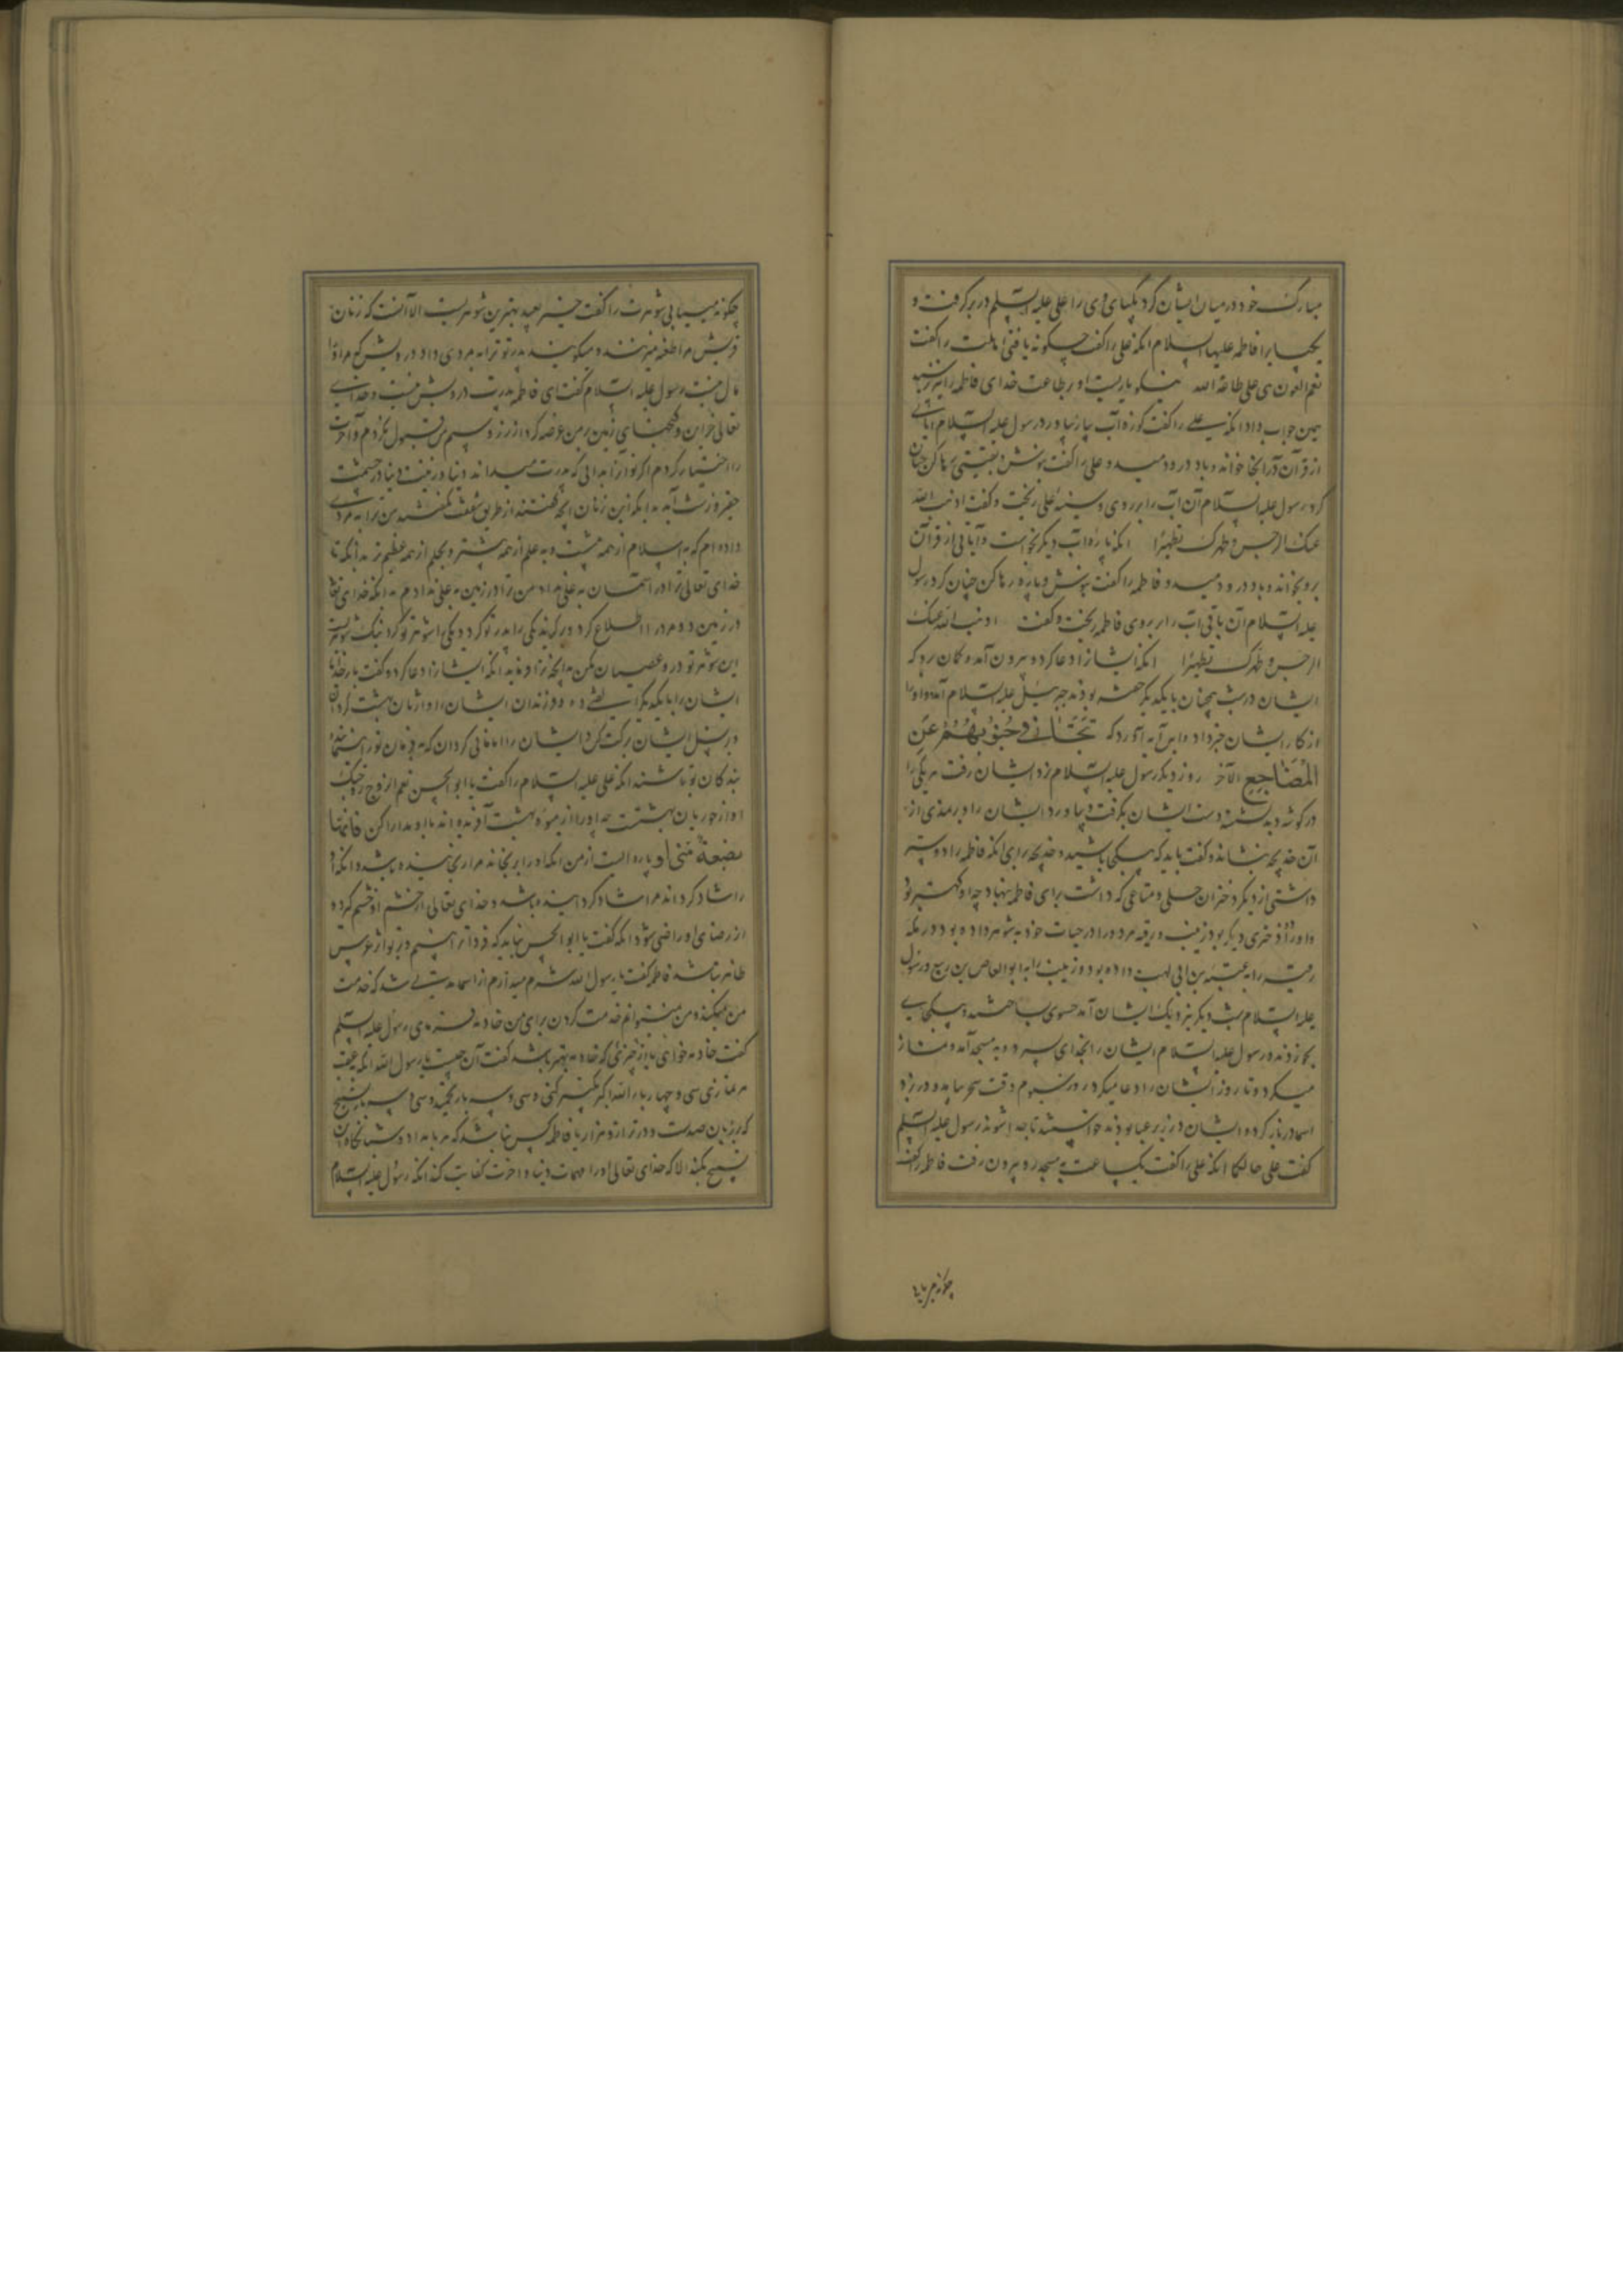 مبارک خود در میان ایشان کرد یکپای وی را علی علیه السلم در بر گرفت و
یکپا را فاطمه علیها السلام آنکه علی را گفت چگونه یافتی اهلت را گفت
نعم العون لی علی طاعة الله نیکو یاریست او بر طاعت خدای فاطمه را پرسید
همین جواب داد آنکه علی را گفت کوزه آب بیار بیاورد رسول علیه السلام آیاتی
از قرآن در آنجا خواند و باد در و دمید و علی را گفت بنوش و بقیتی رها کن چنان
کرد رسول علیه السلام آن آب را بر روی و سینه علی ریخت و گفت اذهب الله
عنک الرجس و طهرک تطهیرا آنکه پاره آب دیگر بخواست و آیاتی از قرآن
برو بخواند و باد در و دمید و فاطمه را گفت بنوش و پاره رها کن چنان کرد رسول
علیه السلام آن باقی آب را بر روی فاطمه ریخت و گفت اذهب الله عنک
الرجس و طهرک تطهیرا آنکه ایشانرا دعا کرد و بیرون آمد و گمان برد که
ایشان در شب همچنان با یکدیگر خفته بودند جبرئیل علیه السلام آمد و او را
از کار ایشان خبر داد و این آیه آورد که تَتَجَافٰی جُنُوبُهُمْ عَنِ
المَضَاجِعِ الآخر روز دیگر رسول علیه السلام نزد ایشان رفت هر یکی را
در گوشه دید نشسته دست ایشان بگرفت و بیاورد ایشان را و بر نمدی از
آن خدیجه بنشاند و گفت باید که بیکجا باشید و خدیجه برای آنکه فاطمه را دوستر
داشتی از دیگر دختران حلی و متاعی که داشت برای فاطمه بنهاد چه او کهتر بود
و او را دختری دیگر بود زینب و رقیه هر دو را در حیات خود به شوهر داده بود در مکه
رقیه را به عتبة بن ابی لهب داده بود و زینب را به ابو العاص بن ربیع و رسول
علیه السلام شب دیگر نزدیک ایشان آمد حسوی ساختند بیکجای
بکار بردند رسول علیه السلام ایشان را بخدای سپرد و به مسجد آمد و نماز
میکرد و تا روز ایشان را دعا میکرد روز سیوم وقت سحر بیامد و در بزد
اسما در باز کرد و ایشان در زیر عبا بودند خواستند تا جدا شوند رسول علیه السلم
گفت علی حالکما آنکه علی را گفت یکساعت به مسجد رو بیرون رفت فاطمه را گفت
چگونه می یابی
چگونه میبیابی شوهرت را گفت خیر بعید بهترین شوهریست الا آنست که زنان
قریش مرا طعنه میزنند و میگویند پدر تو ترا به مردی داد درویش که مر او را
مال نیست رسول علیه السلام گفت ای فاطمه پدرت درویش نیست و خدای
تعالی خزاین و گنجهای زمین بر من عرضه کرد از زر و سیم من قبول نکردم و آخرت
را اختیار کردم اگر تو آن بدانی که پدرت میداند دنیا و زینت دنیا در چشمت
حقیر و زشت آید بدانکه این زنان آنچه گفتند از طریق شفقت نگفتند من ترا به مردی
داده ام که به اسلام از همه پیشست و به علم از همه بیشتر و بحلم از همه عظیم تر بدانکه تا
خدای تعالی ترا در آسمان به علی نداد من ترا در زمین به علی ندادم بدانکه خدای تعالی
در زمین دو مرد را اطلاع کرد و برگزید یکی را پدر تو کرد و یکی را شوهر تو کرد نیک شوهریست
این شوهر تو درو عصیان مکن بدانچه ترا فرماید آنکه ایشانرا دعا کرد و گفت بار خدایا
ایشان را با یکدیگر الفت ده و فرزندان ایشان را وارثان بهشت گردان
و بر نسل ایشان برکت کن و ایشان را امامانی گردان که به فرمان تو راهنمای
بندگان تو باشند آنکه علی علیه السلام را گفت یا ابو الحسن نعم الزوج زوجک
او از حوریان بهشتست چه او را از میوه بهشت آفریده اند با او مدارا کن فانها
بضعة منی او پاره ایست از من آنکه او را برنجاند مرا رنجانیده باشد و آنکه او
را شاد گرداند مرا شاد گردانیده باشد و خدای تعالی از خشم او خشم گیرد و
از رضای او راضی شود آنکه گفت یا ابو الحسن نباید که فردا ترا بینم و بر تو اثر عروس
ظاهر نباشد فاطمه گفت یا رسول الله شرم میدارم از اسما مدتی شد که خدمت
من میکند و من نمیتوانم خدمت کردن برای من خادمه بفرمای رسول علیه السلم
گفت خادمه خواهی یا از چیزی که خادمه بهتر باشد گفت آن چیست یا رسول الله آنکه عقب
هر نمازی سی و چهار بار الله اکبر تکبیر کنی و سی و سه بار تحمید و سی و سه بار تسبیح
که بر زبان صدست و در ترازو هزار یا فاطمه کس نباشد که هر بامداد و شبانگاه این
تسبیح بکند الا که خدای تعالی او را مهمات دنیا و آخرت کفایت کند آنکه رسول علیه السلام